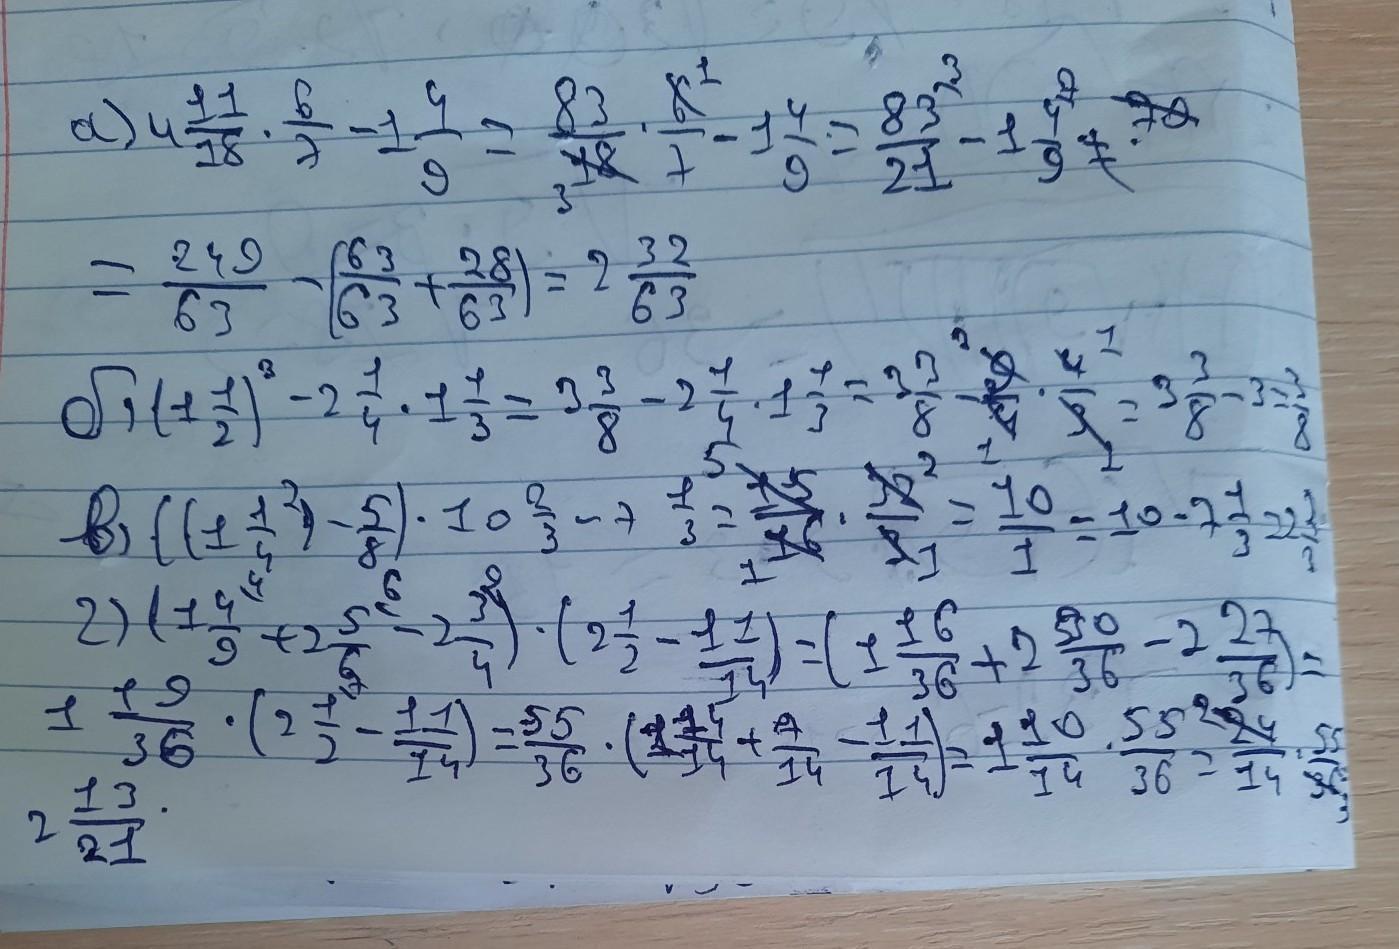 а) 4 11/18 · 6/7 - 1 4/9 = 83/18 · 6/7 - 1 4/9 = 83/21 - 1 4/9
= 249/63 - (63/63 + 28/63) = 2 32/63
б) (1 1/2)³ - 2 1/4 · 1 1/3 = 3 3/8 - 2 1/4 · 1 1/3 = 3 3/8 - 9/4 · 4/3 = 3 3/8 - 3 = 3/8
в) ((1 1/4)² - 5/8) · 10 2/3 - 7 1/3 = 15/16 · 32/3 = 10/1 = 10 - 7 1/3 = 2 2/3
г) (1 4/9 + 2 5/6 - 2 3/4) · (2 1/2 - 11/14) = (1 16/36 + 2 30/36 - 2 27/36) =
1 19/36 · (2 1/2 - 11/14) = 55/36 · (1 14/14 + 7/14 - 11/14) = 1 10/14 · 55/36 = 24/14 · 55/36
2 13/21 .